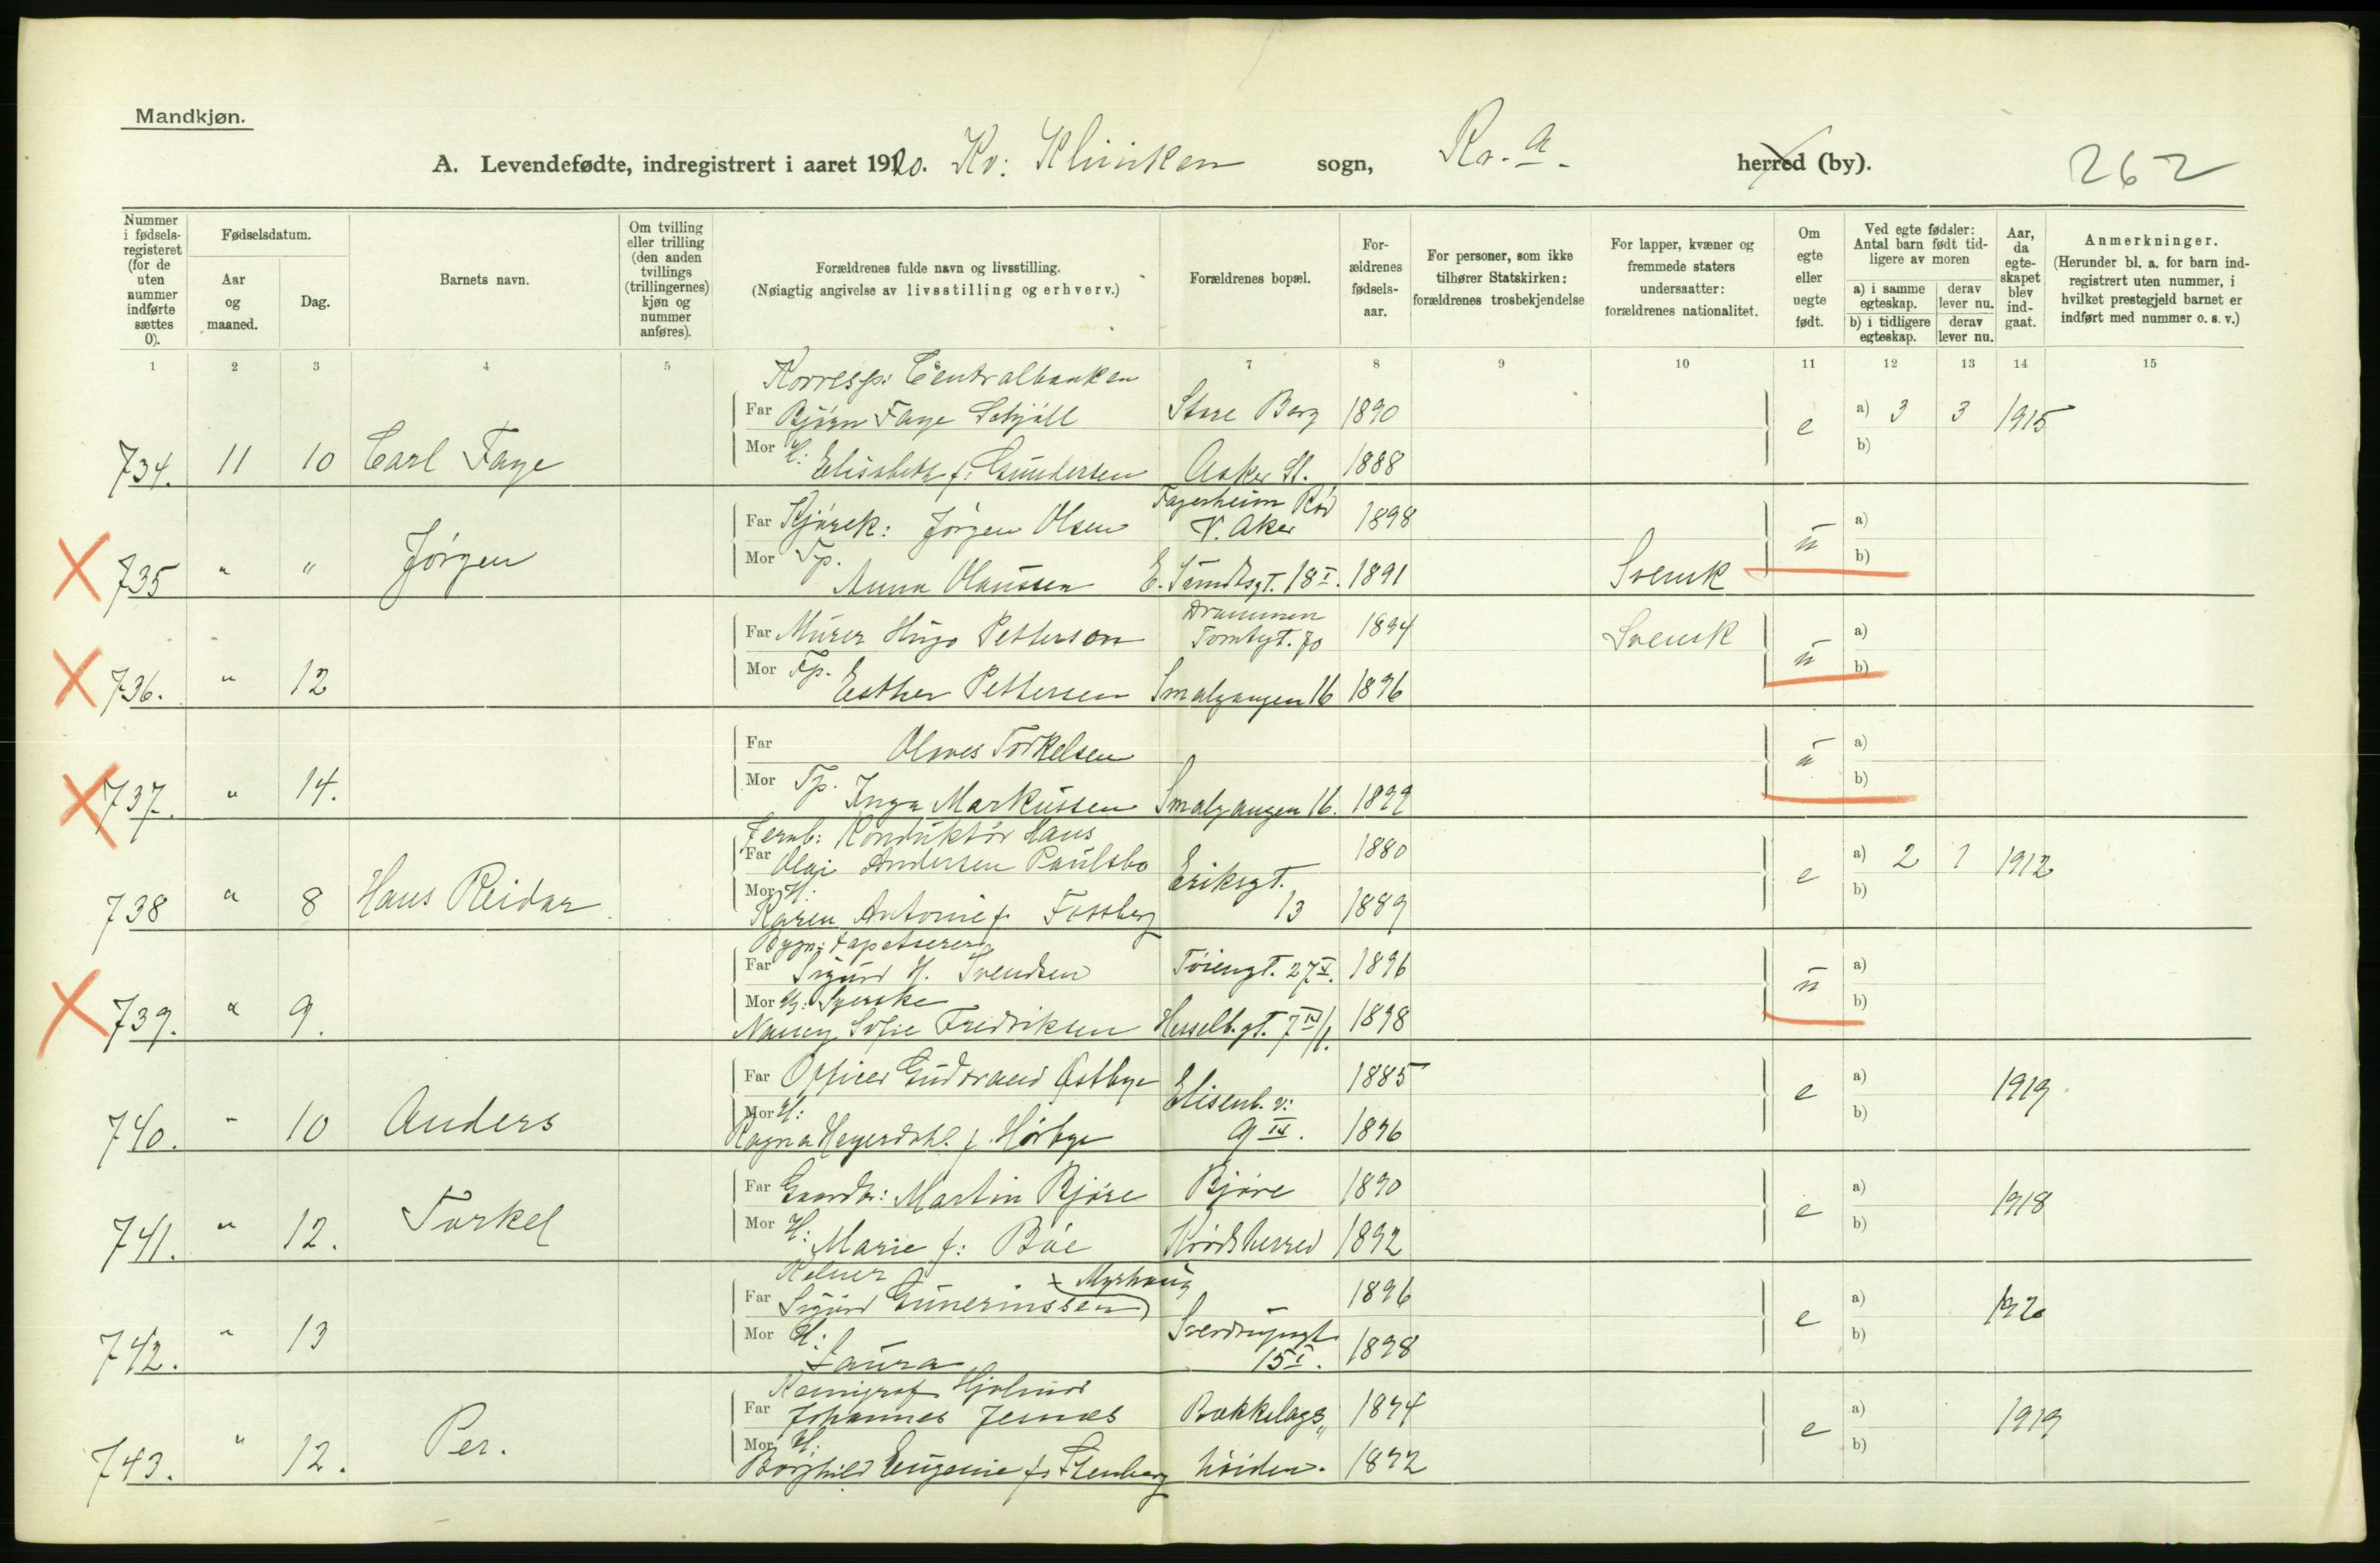 Mandkjøn.
A. Levendefødte, indregistrert i aaret 1920. Kv: Klinikken sogn, Kr.a. herred (by). 262
Nummer i fødselsregisteret (for de uten nummer indførte sættes 0).
Fødselsdatum.
Aar og maaned.
Dag.
Barnets navn.
Om tvilling eller trilling (den anden tvillings (trillingernes) kjøn og nummer anføres).
Forældrenes fulde navn og livsstilling.
(Nøiagtig angivelse av livsstilling og erhverv.)
Forældrenes bopæl.
Forældrenes fødselsaar.
For personer, som ikke tilhører Statskirken: forældrenes trosbekjendelse
For lapper, kvæner og fremmede staters undersaatter: forældrenes nationalitet.
Om egte eller uegte født.
Ved egte fødsler: Antal barn født tidligere av moren
a) i samme egteskap.
derav lever nu.
b) i tidligere egteskap.
derav lever nu.
Aar, da egteskapet blev indgaat.
Anmerkninger.
(Herunder bl. a. for barn indregistrert uten nummer, i hvilket prestegjeld barnet er indført med nummer o. s. v.)
1 2 3 4 5 7 8 9 10 11 12 13 14 15
Korresp: Centralbanken
Far Bjørn Faye Schjøll Store Berg 1890 e a) 3 3 1915
b)
734. 11 10 Carl Faye Mor H: Elisabeth f: Gundersen Asker St. 1888
Fagerheim
Far Jørgen Olsen V. Aker 1898 ü a)
b)
735 " " Jørgen Mor Tp. Anna Olaussen E. Sundtsgt. 18 I. 1891 Svensk
Drammen
Far Murer Hugo Petterson Tomtegt. 70 1894 Svensk ü a)
b)
736. " 12 Mor Tp. Esther Pettersen Smalgangen 16 1896
Far Torkelsen ü a)
b)
737. " 14. Mor Tp. Inga Markussen Smalgangen 16. 1899
Jernb: Konduktør Hans
Far Olai Andersen Paulsbo 1880 e a) 2 1 1912
Eriksgt.
b)
738 " 8 Hans Reidar Mor H. Karen Antonie f. Fossberg 13 1889
Bygn: tapetserer
Far Sigurd H. Svendsen Tøiengt. 27 V. 1896 ü a)
b)
739. " 9. Mor Syerske
Nancy Sofie Fredriksen Hesselb.gt. 7 IV/1. 1898
Far Officer Gudbrand Østbye 1885 e a) 1919
Elisenb. v:
b)
740. " 10 Anders Mor H: Ragna Heyerdahl f. Hørbye 9 III. 1896
Far Gaardbr: Martin Bjøre Bjøre 1890 e a) 1918
b)
741. " 12. Torkel Mor H: Marie f: Bøe Krødsherred 1892
Kelner x Myrhaug
Far Sigurd Gunerinssen) 1896 e a) 1920
Sverdrupsgt
b)
742. " 13 Mor H: Laura 15 I. 1898
Kemigraf Hjalmar
Far Johannes Jesnæs Bækkelags„ 1894 e a) 1919
b)
743. " 12. Per. Mor H. Borghild Eugenie f: Stenberg høiden. 1892